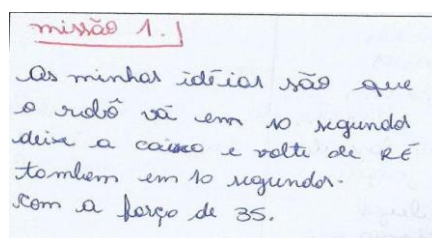 missão 1.
As minhas idéias são que
o robô vá em 10 segundos
deixe a caixa e volte de RÉ
tambem em 10 segundos.
com a força de 35.